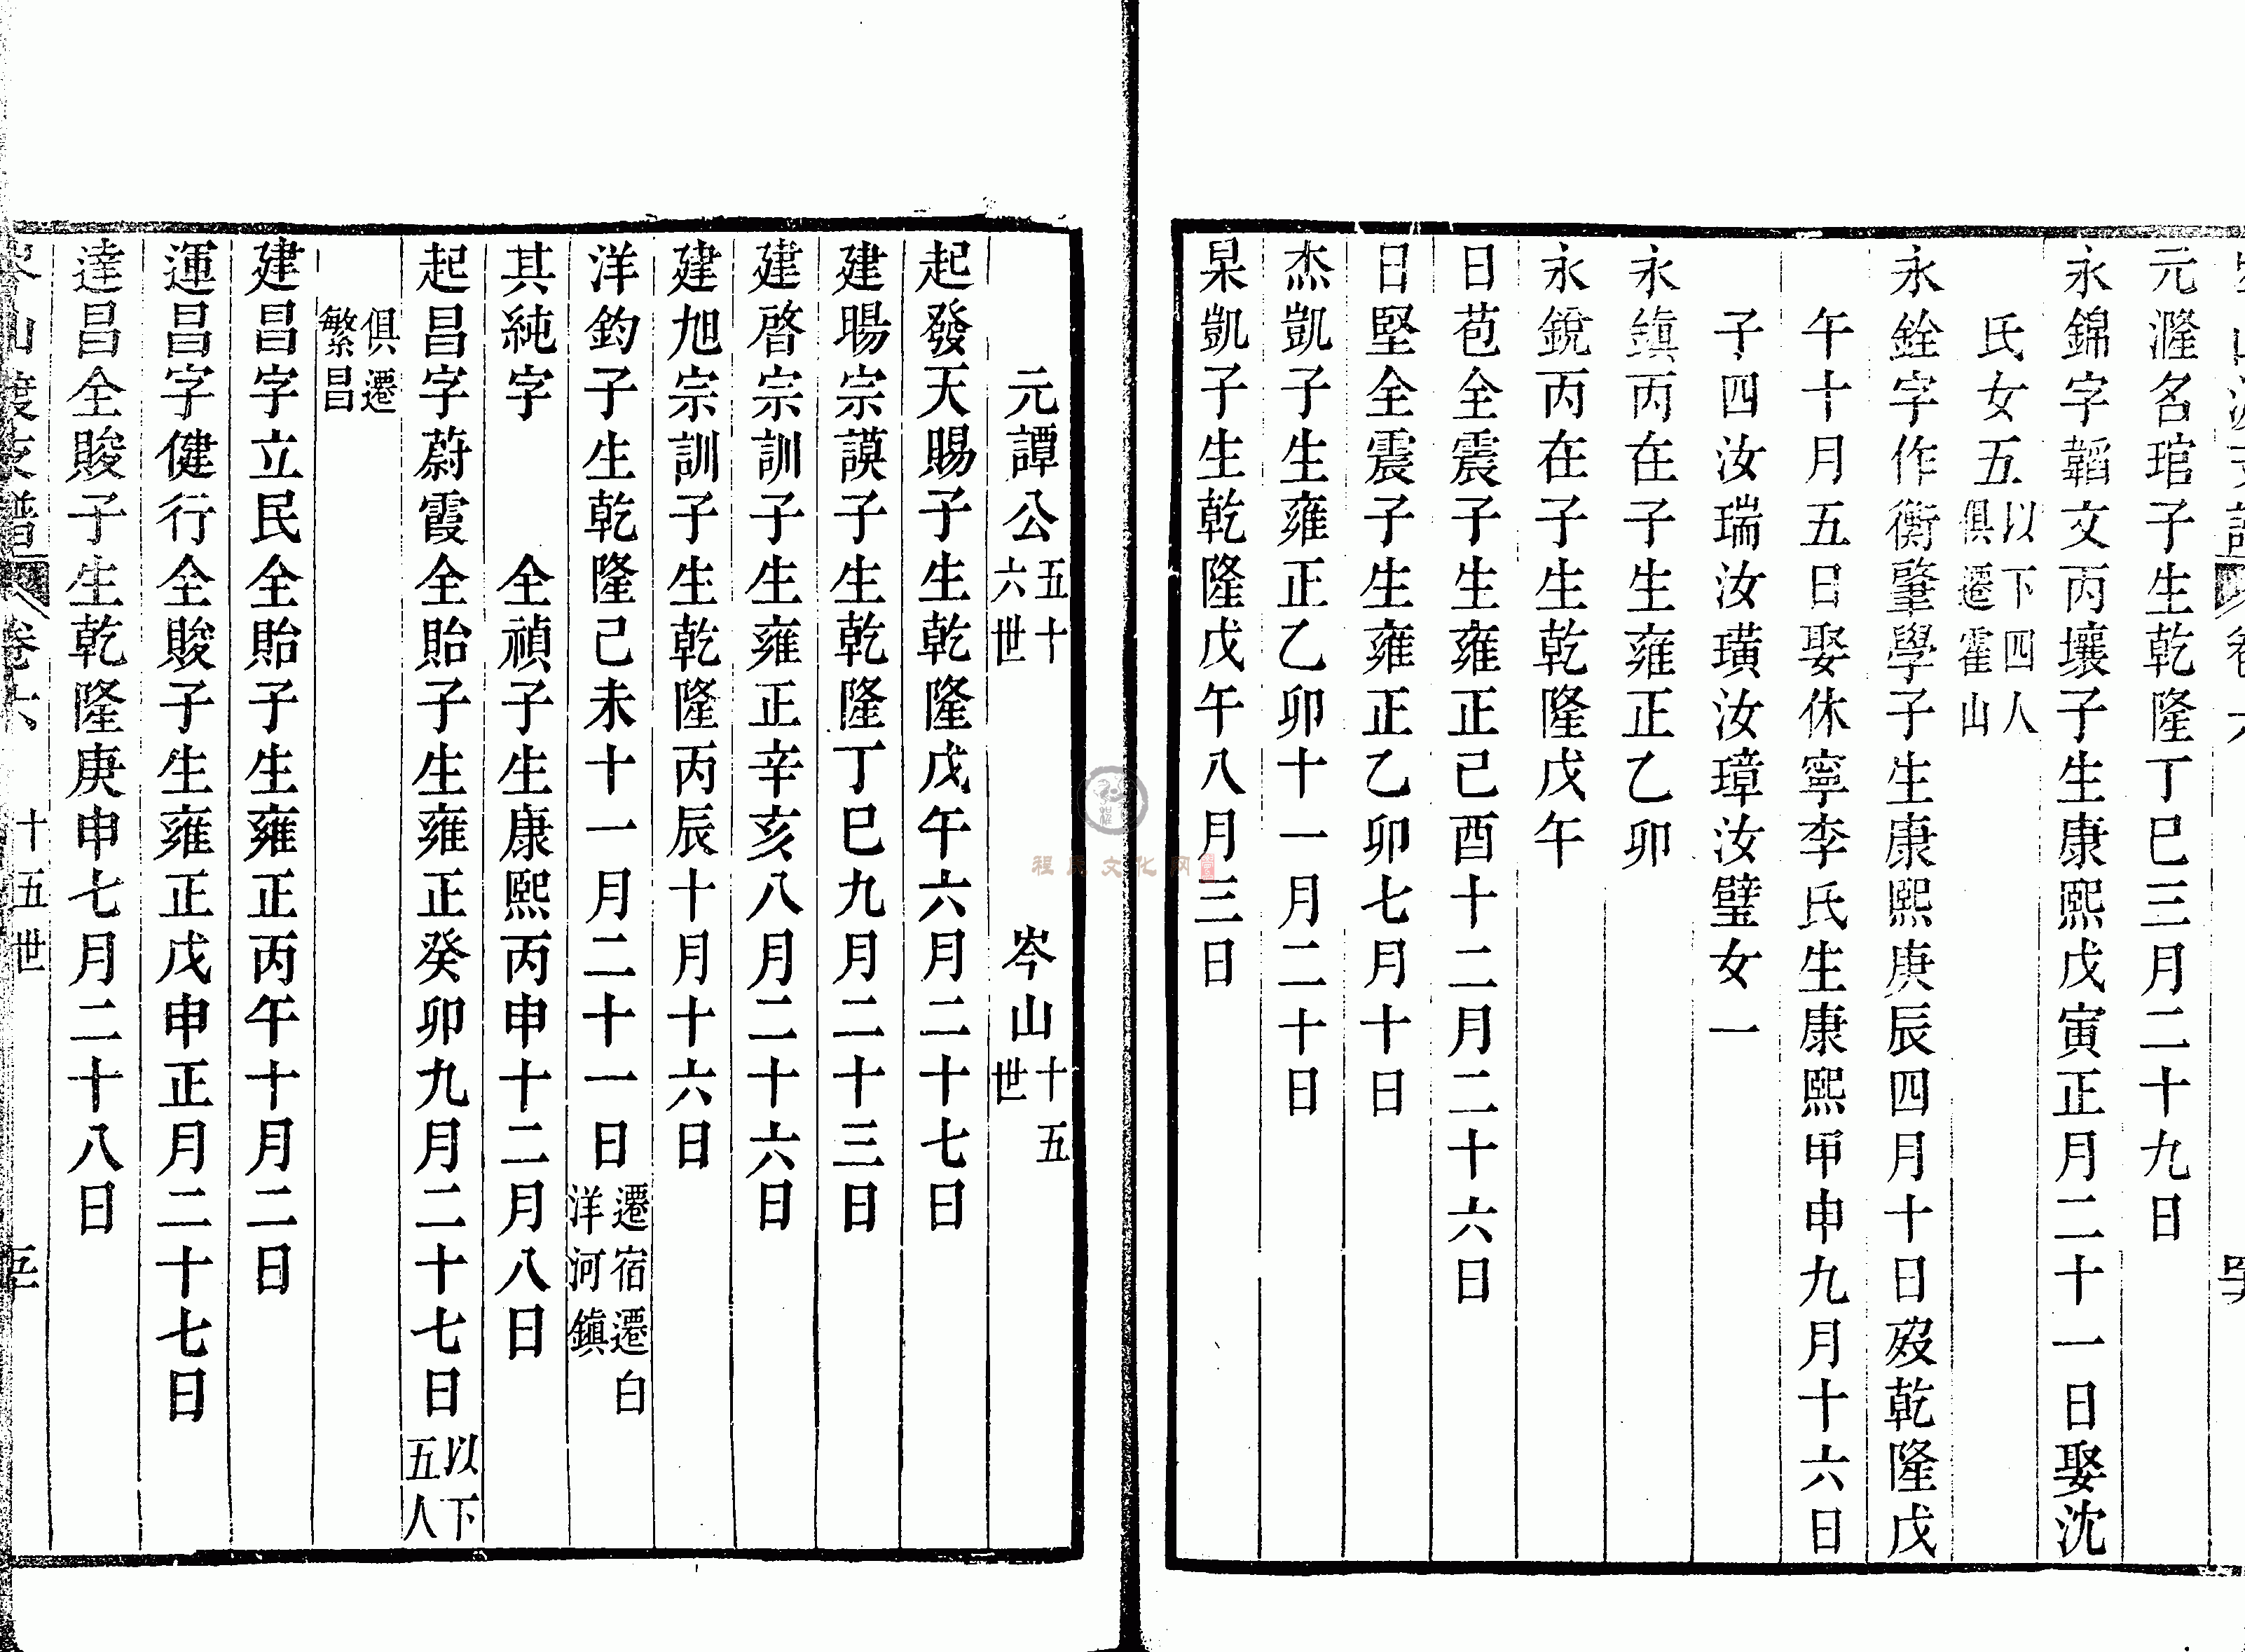 元漋名琯子生乾隆丁巳三月二十九日
永錦字韜文丙壤子生康熙戊寅正月二十一日娶沈
氏女五以下四人俱遷霍山
永銓字作衡肇學子生康熙庚辰四月十日歿乾隆戊
午十月五日娶休寧李氏生康熙甲申九月十六日
子四汝瑞汝璜汝璋汝璧女一
永鎮丙在子生雍正乙卯
永銳丙在子生乾隆戊午
日苞全震子生雍正己酉十二月二十六日
日堅全震子生雍正乙卯七月十日
杰凱子生雍正乙卯十一月二十日
杲凱子生乾隆戊午八月三日
元譚公五十六世 岑山十五世
起發天賜子生乾隆戊午六月二十七日
建暘宗謨子生乾隆丁巳九月二十三日
建啓宗訓子生雍正辛亥八月二十六日
建旭宗訓子生乾隆丙辰十月十六日
洋鈞子生乾隆己未十一月二十一日遷宿遷白洋河鎮
其純字 全禎子生康熙丙申十二月八日
起昌字蔚霞全貽子生雍正癸卯九月二十七日以下五人
俱遷繁昌
建昌字立民全貽子生雍正丙午十月二日
運昌字健行全賅子生雍正戊申正月二十七日
達昌全賅子生乾隆庚申七月二十八日
岑山渡支譜 卷六 十五世 五
程氏文化网